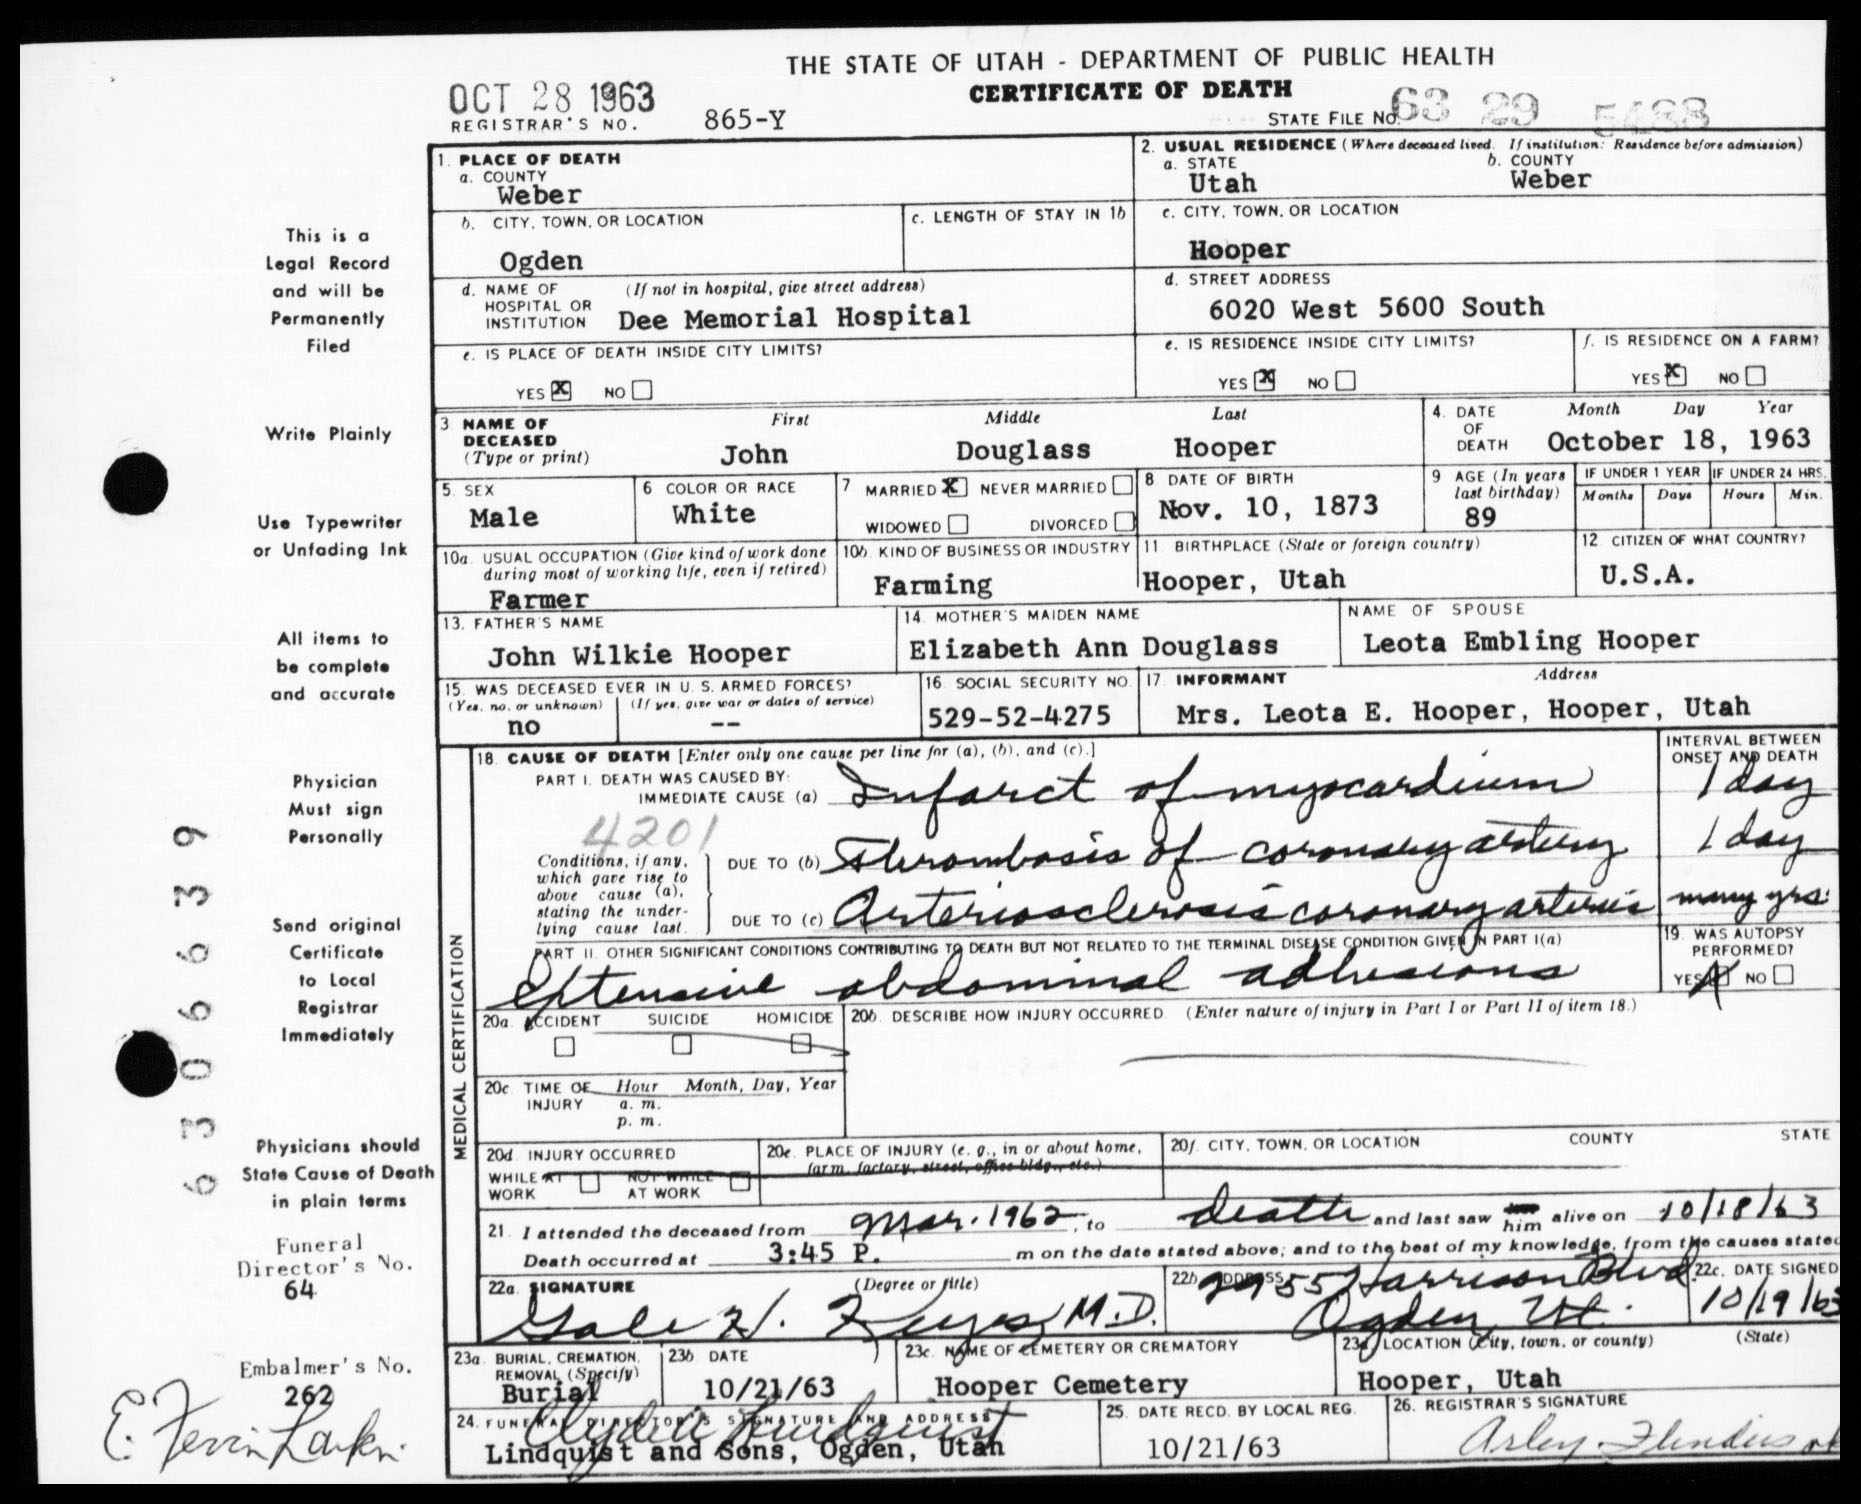 THE STATE OF UTAH - DEPARTMENT OF PUBLIC HEALTH
CERTIFICATE OF DEATH
OCT 28 1963
REGISTRAR'S NO. 865-Y
STATE FILE NO. 63 29 5488
This is a
Legal Record
and will be
Permanently
Filed
Write Plainly
Use Typewriter
or Unfading Ink
All items to
be complete
and accurate
Physician
Must sign
Personally
Send original
Certificate
to Local
Registrar
Immediately
Physicians should
State Cause of Death
in plain terms
Funeral
Director's No.
64
Embalmer's No.
262
E. Larkin
6306639
1. PLACE OF DEATH
a. COUNTY
Weber
2. USUAL RESIDENCE (Where deceased lived. If institution: Residence before admission)
a. STATE
Utah
b. COUNTY
Weber
b. CITY, TOWN, OR LOCATION
Ogden
c. LENGTH OF STAY IN 1b
c. CITY, TOWN, OR LOCATION
Hooper
d. NAME OF HOSPITAL OR INSTITUTION (If not in hospital, give street address)
Dee Memorial Hospital
d. STREET ADDRESS
6020 West 5600 South
e. IS PLACE OF DEATH INSIDE CITY LIMITS?
YES X NO
e. IS RESIDENCE INSIDE CITY LIMITS?
YES X NO
f. IS RESIDENCE ON A FARM?
YES X NO
3 NAME OF DECEASED (Type or print)
First Middle Last
John Douglass Hooper
4. DATE OF DEATH
Month Day Year
October 18, 1963
5. SEX
Male
6 COLOR OR RACE
White
7 MARRIED X NEVER MARRIED
WIDOWED DIVORCED
8 DATE OF BIRTH
Nov. 10, 1873
9 AGE (In years last birthday)
89
IF UNDER 1 YEAR
Months Days
IF UNDER 24 HRS.
Hours Min.
10a. USUAL OCCUPATION (Give kind of work done during most of working life, even if retired)
Farmer
10b. KIND OF BUSINESS OR INDUSTRY
Farming
11. BIRTHPLACE (State or foreign country)
Hooper, Utah
12. CITIZEN OF WHAT COUNTRY?
U.S.A.
13. FATHER'S NAME
John Wilkie Hooper
14. MOTHER'S MAIDEN NAME
Elizabeth Ann Douglass
NAME OF SPOUSE
Leota Embling Hooper
15. WAS DECEASED EVER IN U. S. ARMED FORCES?
(Yes, no, or unknown) (If yes, give war or dates of service)
no --
16. SOCIAL SECURITY NO.
529-52-4275
17. INFORMANT Address
Mrs. Leota E. Hooper, Hooper, Utah
MEDICAL CERTIFICATION
18. CAUSE OF DEATH [Enter only one cause per line for (a), (b), and (c).]
INTERVAL BETWEEN ONSET AND DEATH
PART I. DEATH WAS CAUSED BY:
IMMEDIATE CAUSE (a) Infarct of myocardium 1 day
4201
Conditions, if any, which gave rise to above cause (a), stating the underlying cause last.
DUE TO (b) Thrombosis of coronary artery 1 day
DUE TO (c) Arteriosclerosis coronary arteries many yrs.
PART II. OTHER SIGNIFICANT CONDITIONS CONTRIBUTING TO DEATH BUT NOT RELATED TO THE TERMINAL DISEASE CONDITION GIVEN IN PART I(a)
Extensive abdominal adhesions
19. WAS AUTOPSY PERFORMED?
YES X NO
20a. ACCIDENT SUICIDE HOMICIDE
20b. DESCRIBE HOW INJURY OCCURRED. (Enter nature of injury in Part I or Part II of item 18.)
20c. TIME OF INJURY Hour Month, Day, Year
a. m.
p. m.
20d. INJURY OCCURRED
WHILE AT WORK NOT WHILE AT WORK
20e. PLACE OF INJURY (e. g., in or about home, farm, factory, street, office bldg., etc.)
20f. CITY, TOWN, OR LOCATION COUNTY STATE
21. I attended the deceased from Mar. 1962, to death and last saw him alive on 10/18/63
Death occurred at 3:45 P. m on the date stated above; and to the best of my knowledge, from the causes stated
22a. SIGNATURE (Degree or title)
Gale H. M.D.
22b. ADDRESS
2955 Harrison Blvd.
Ogden, Ut.
22c. DATE SIGNED
10/19/63
23a. BURIAL, CREMATION, REMOVAL (Specify)
Burial
23b DATE
10/21/63
23c. NAME OF CEMETERY OR CREMATORY
Hooper Cemetery
23d. LOCATION (City, town, or county) (State)
Hooper, Utah
24. FUNERAL DIRECTOR'S SIGNATURE AND ADDRESS
Lindquist
Lindquist and Sons, Ogden, Utah
25. DATE RECD. BY LOCAL REG.
10/21/63
26. REGISTRAR'S SIGNATURE
Arley Flinders